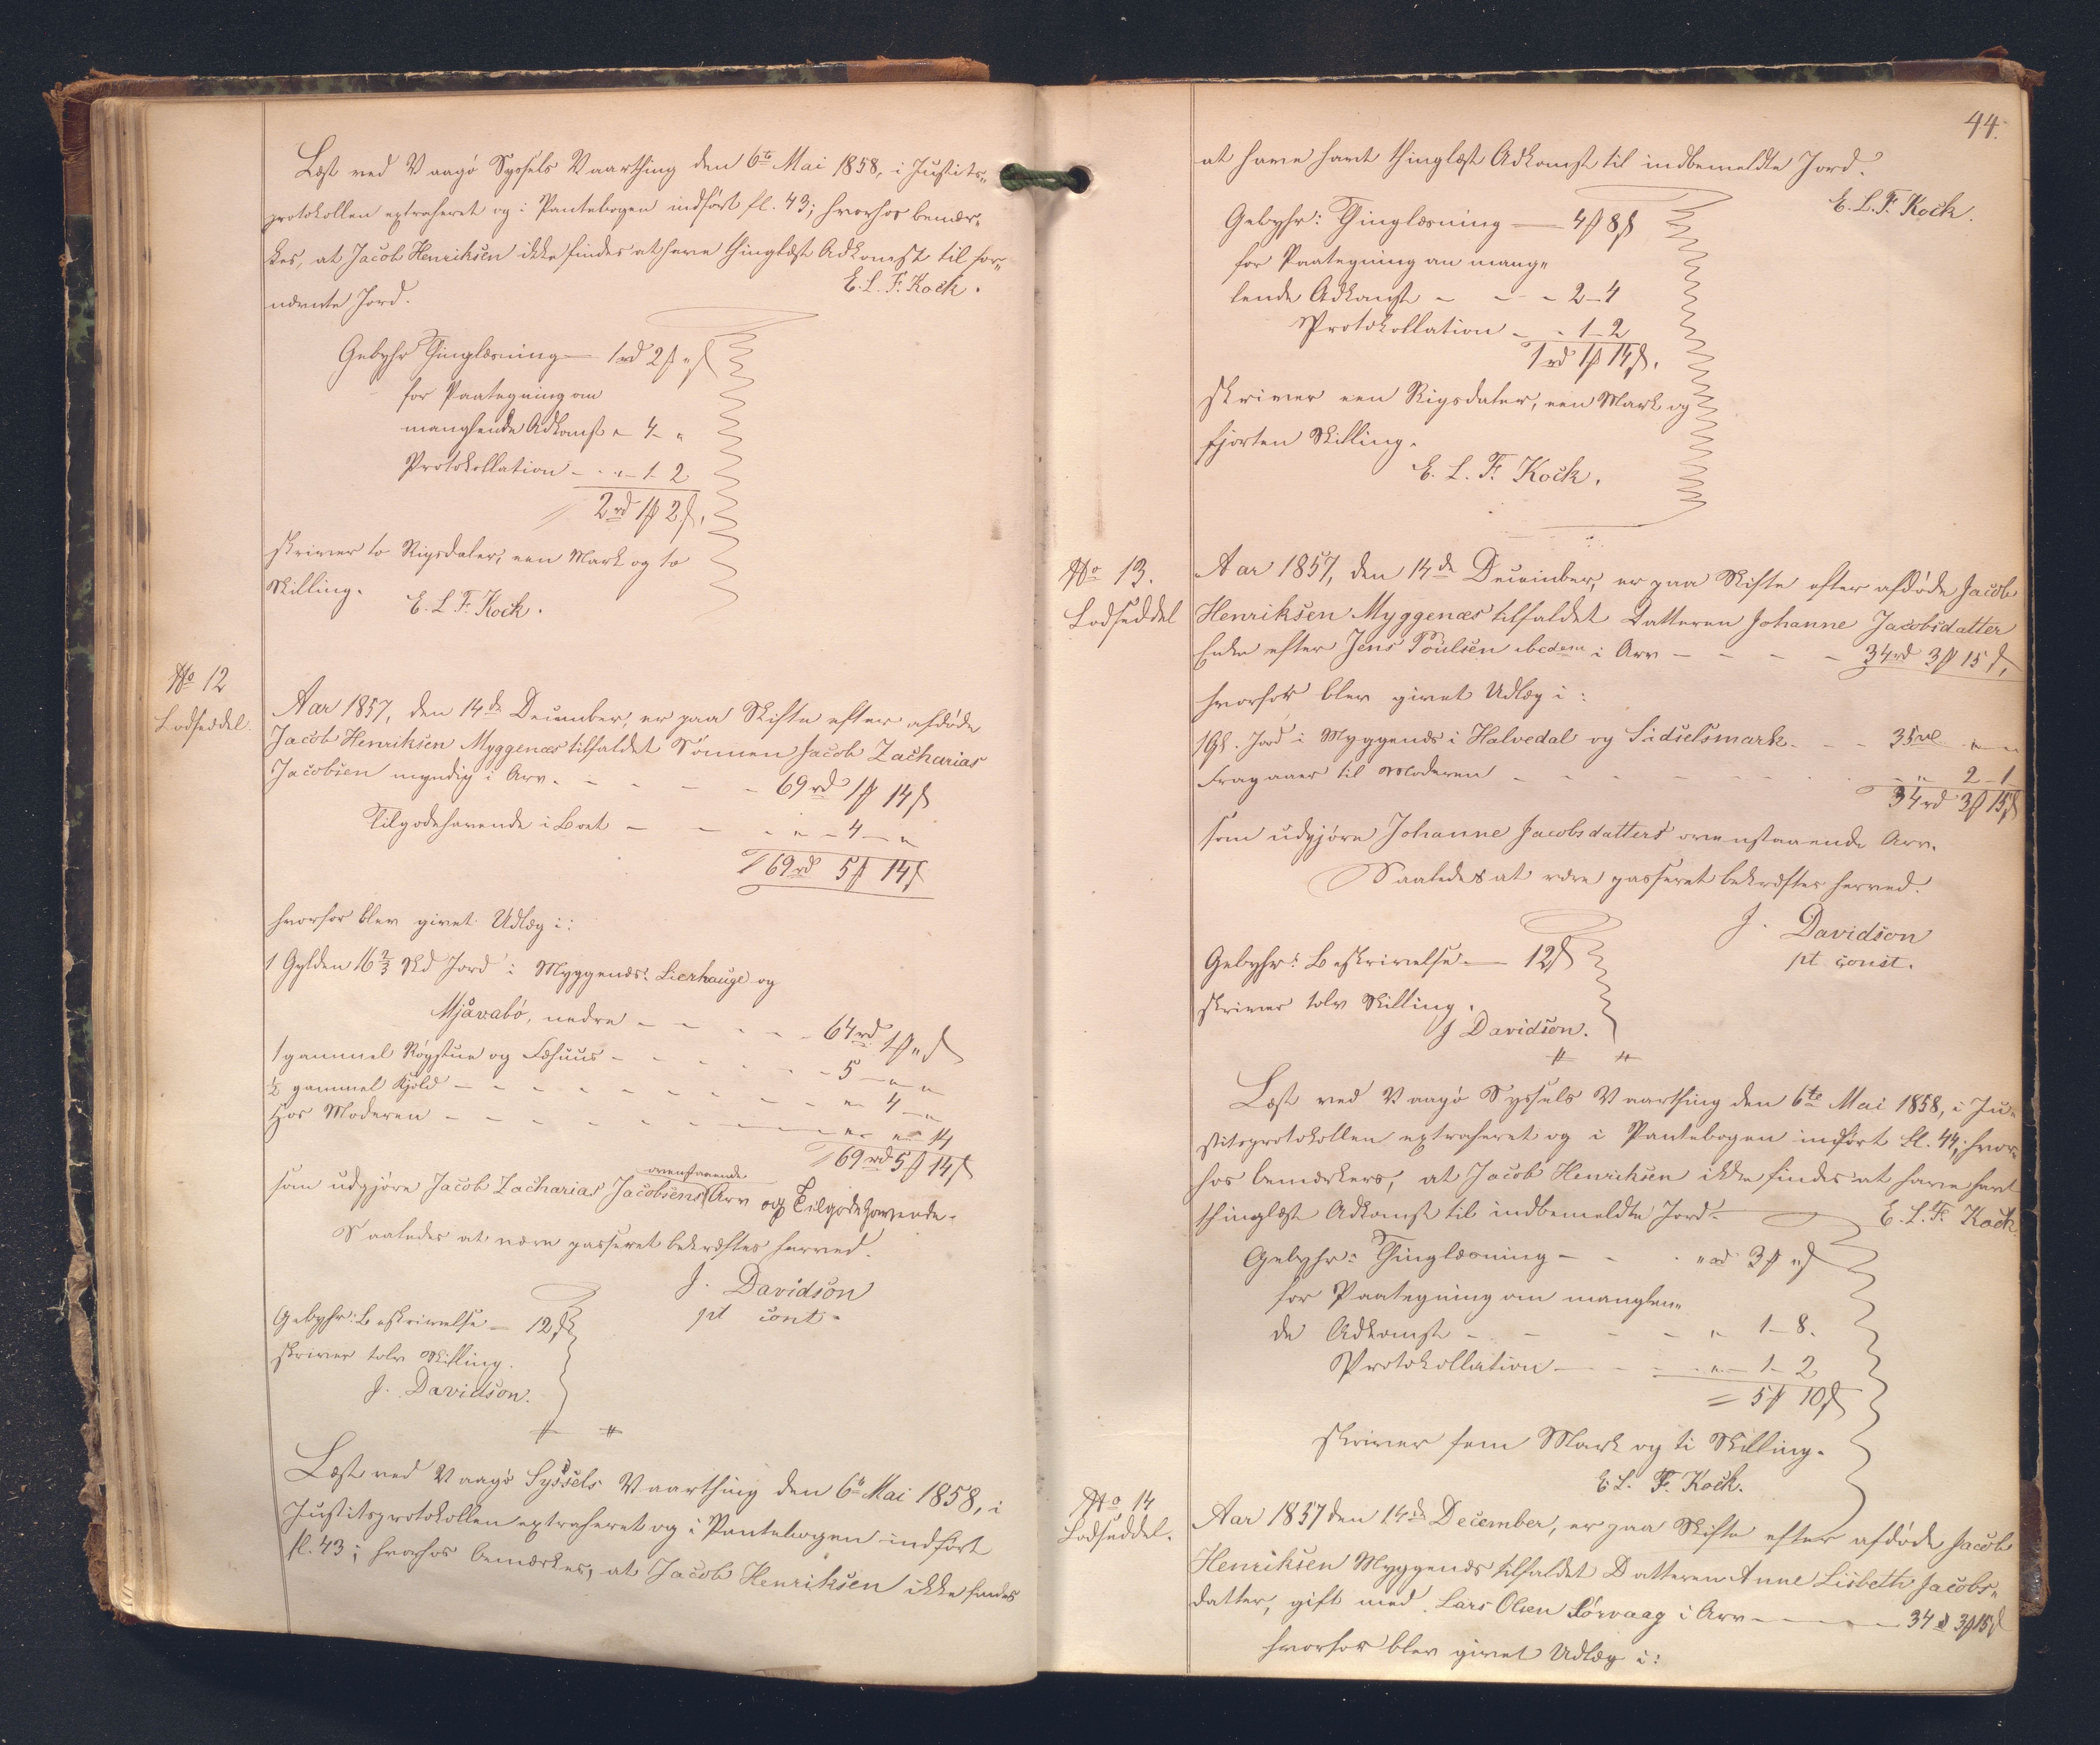 Læst ved Vaagø Syssels Vaarthing den 6te Mai 1858, i Justits-
protokollen extraheret og i Pantebogen indført fl. 43; hvorhos bemær-
kes, at Jacob Henriksen ikke findes at have thinglæst Adkomst til for-
nævnte Jord.
E. L. F. Kock.
Gebyhr Thinglæsning — 1rd 2ꝥ " ß
for Paategning om
manglende Adkomst " 4 "
Protokollation - - " 1 2
2rd 1ꝥ 2ß.
skriver to Rigsdaler, een Mark og to
Skilling.
E. L. F. Kock.
No 12
Lodseddel.
Aar 1857, den 14de December, er paa Skifte efter afdøde
Jacob Henriksen Myggenæs tilfaldet Sønnen Jacob Zacharias
Jacobsen myndig i Arv. - - - - 69rd 1ꝥ 14ß
Tilgodehavende i Boet - - - " - 4 - "
69rd 5ꝥ 14ß
hvorfor blev givet Udlæg i:
1 Gylden 16 2/3 Skd Jord i Myggenæs: Lierhauge og
Mjåvabø, nedre - - - - - 64rd 1ꝥ " ß
1 gammel Røgstue og Fæhuus - - - - 5 - " "
1/2 gammel Kjold - - - - - - - " 4 - "
Hos Moderen - - - - - - - " " 14
69rd 5ꝥ 14ß
ovenstaaende
som udgjøre Jacob Zacharias Jacobsens Arv og Tilgodehavende.
Saaledes at være passeret bekræftes herved.
J. Davidson
pt const.
Gebyhr: Beskrivelse — 12ß
skriver tolv Skilling.
J. Davidson.
Læst ved Vaagø Syssels Vaarthing den 6te Mai 1858, i
Justitsprotokollen extraheret og i Pantebogen indført
fl. 43; hvorhos bemærkes, at Jacob Henriksen ikke findes
44.
at have havt thinglæst Adkomst til indbemeldte Jord.
E. L. F. Kock.
Gebyhr: Thinglæsning — 4ꝥ 8ß
for Paategning om mang-
lende Adkomst - - - 2 - 4
Protokollation - - 1 - 2
1rd 1ꝥ 14ß.
skriver een Rigsdaler, een Mark og
fjorten Skilling.
E. L. F. Kock.
No 13.
Lodseddel
Aar 1857, den 14de December, er paa Skifte efter afdøde Jacob
Henriksen Myggenæs tilfaldet Datteren Johanne Jacobsdatter
Enke efter Jens Poulsen ibedem i Arv - - - - 34rd 3ꝥ 15ß,
hvorfor blev givet Udlæg i:
1 Gl. Jord i Myggenæs i Halvedal og Sidselsmark. - - 35rd " "
Fragaaer til Moderen - - - - - - " 2 - 1
34rd 3ꝥ 15ß
som udgjøre Johanne Jacobsdatters ovenstaaende Arv.
Saaledes at være passeret bekræftes herved.
J. Davidson
pt const.
Gebyhr: Beskrivelse — 12ß
skriver tolv Skilling.
J Davidson.
Læst ved Vaagø Syssels Vaarthing den 6te Mai 1858, i Ju-
stitsprotokollen extraheret og i Pantebogen indført fl. 44; hvor-
hos bemærkes, at Jacob Henriksen ikke findes at have havt
thinglæst Adkomst til indbemeldte Jord.
E. L. F. Kock
Gebyhr: Thinglæsning - - " rd 3ꝥ " ß
for Paategning om manglen-
de Adkomst - - - - " 1 - 8.
Protokollation - - - " - 1 - 2
= 5ꝥ 10ß
skriver fem Mark og ti Skilling.
E. L. F. Kock.
No 14
Lodseddel.
Aar 1857 den 14de December, er paa Skifte efter afdøde Jacob
Henriksen Myggenæs tilfaldet Datteren Anne Lisbeth Jacobs-
datter, gift med Lars Olsen Sørvaag i Arv - - - - 34rd 3ꝥ 15ß
hvorfor blev givet Udlæg i: